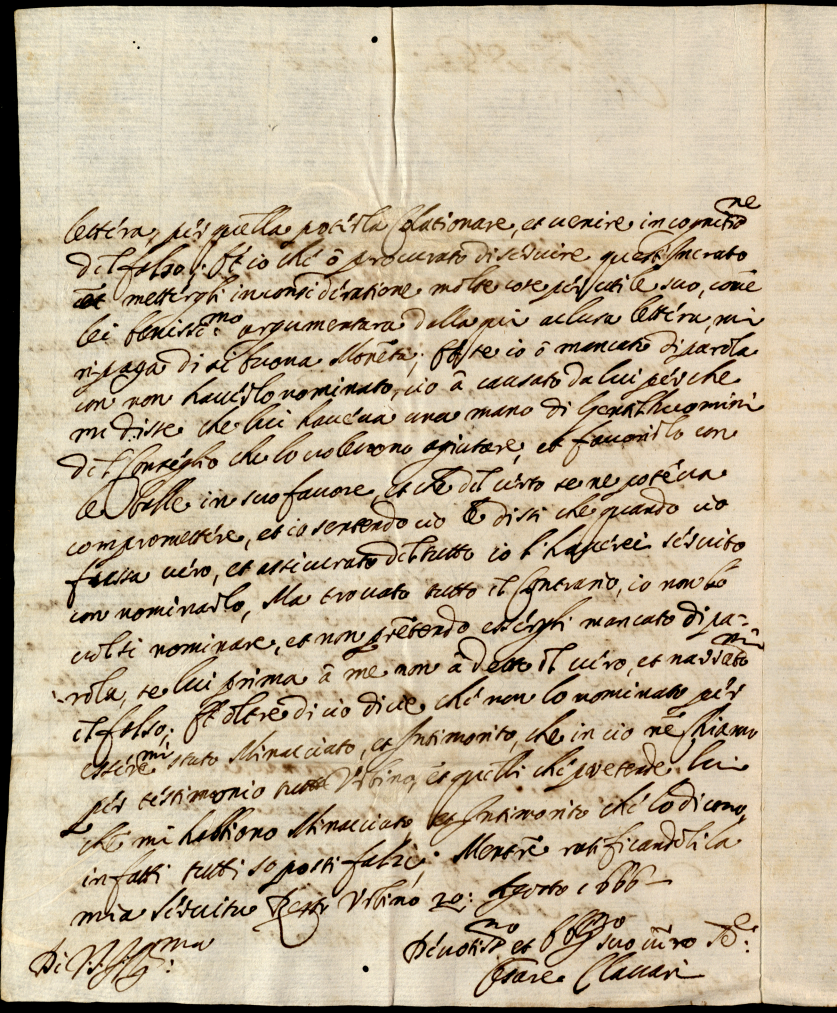 lettera, per quella poterla Colationare, et venire in cognit.ne
del falso; Et io che ò procurato di servire quest'Ingrato
et mettergli in consideratione molte cose per utile suo, come
lei beniss.mo argumentara dalla qui aclusa lettera, mi
ripaga di si buona Moneta; Et se io ò mancato di parola
con non haverlo nominato, cio à causato da lui perche
mi disse che lui haveva una mano di Gentilhuomini
del Conseglio che lo volevono agiutare, et favorirlo con
le Balle in suo favore, et che del certo se ne poteva
compromettere, et io sentendo cio le dissi che quando cio
fusse vero, et assicurato del tutto io l'haverei servito
con nominarlo, Ma trovato tutto il Contrario, io non hò
volsi nominare, et non pretendo essergli mancato di pa-
rola, se lui prima à me non à detto il vero, et narratomi
il falso; Et oltre di cio dice che non lo nominato per
essermi stato Minacciato, et Intimorito, che in cio ne Chiamo
per testimonio tutto Urbino, et quelli che pretende lui
che mi habbiono Minacciato, et Intimorito che lo dicono,
in fatti tutti soposti falzi; Mentre ratificandoli la
mia servitu Resto Urbino 20: Agosto 1666
Di V.S. Ill.ma
Devotis.mo et Obblig.mo suo vero Se.
Cesare Clavari